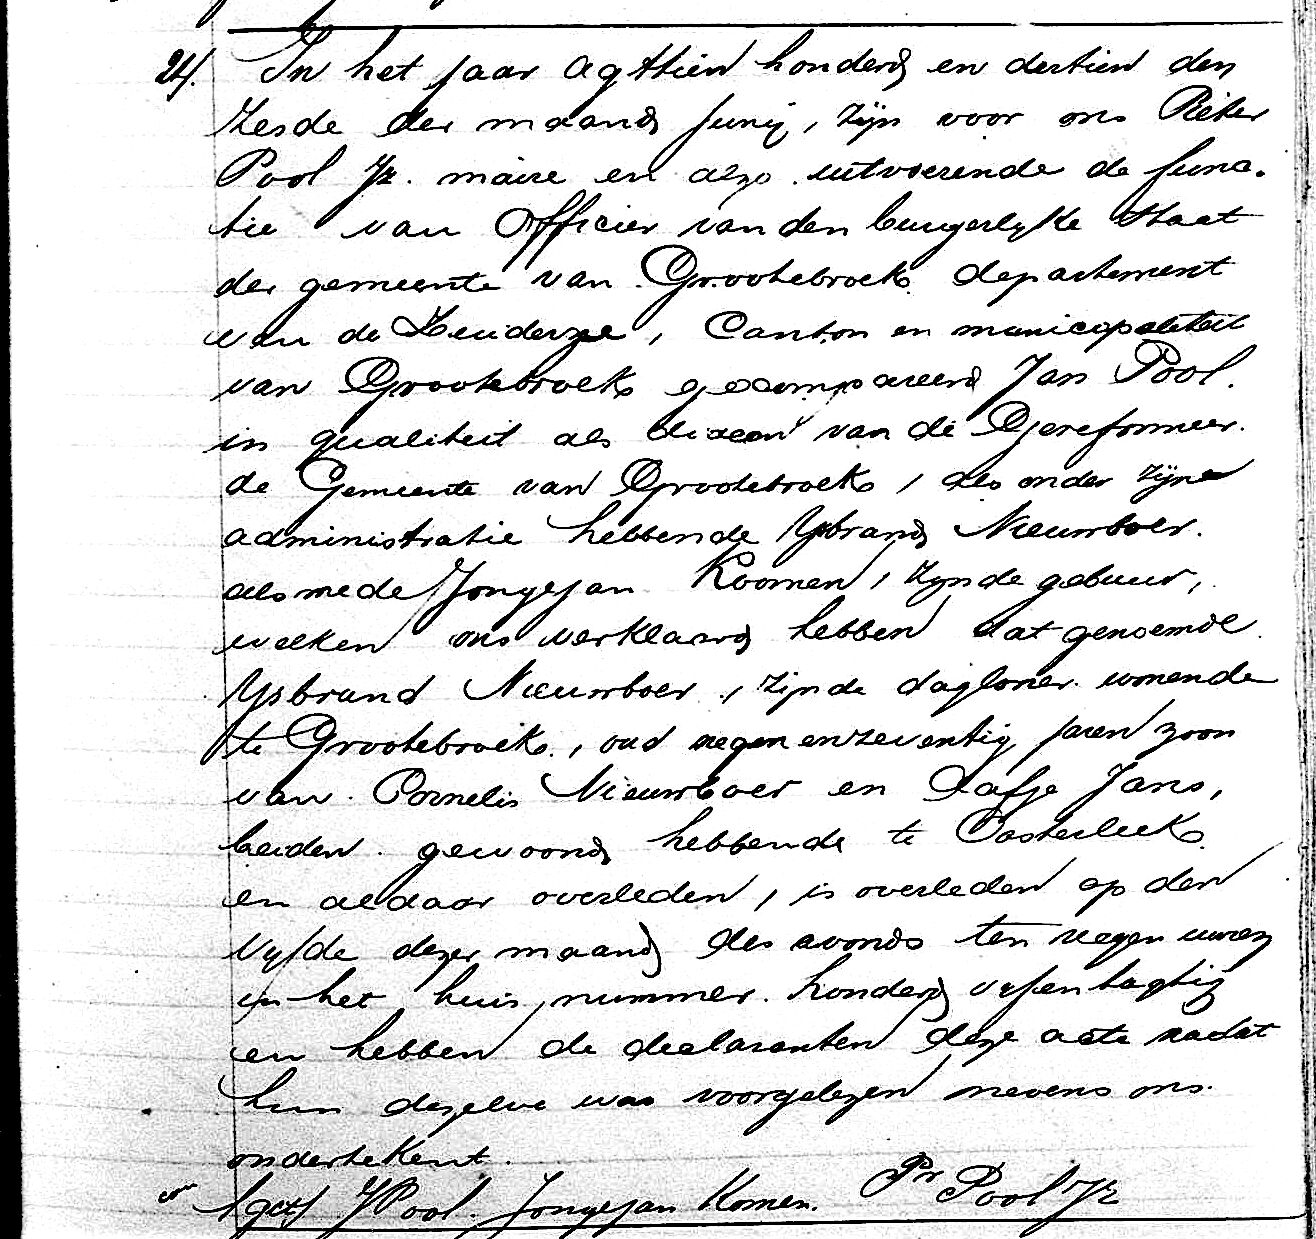 24. In het jaar agttien honderd en dertien den
zesde der maand Junij, zijn voor ons Pieter
Pool Jz. maire en alzo uitvoerende de func-
tie van Officier van den burgerlyke Staat
der gemeente van Grootebroek departement
van de Zuiderzee, Canton en municipaliteit
van Grootebroek gecompareerd Jan Pool.
in qualiteit als diacon van de Gereformeer-
de Gemeente van Grootebroek, als onder zijne
administratie hebbende Ysbrand Nieuwboer.
als mede Jongejan Koomen, zynde gebuur,
welken ons verklaard hebben dat genoemde
Ysbrand Nieuwboer, zijnde dagloner wonende
te Grootebroek, oud negen en zeventig jaren zoon
van Cornelis Nieuwboer en Aafje Jans,
beiden gewoond hebbende te Oosterleek
en aldaar overleden, is overleden op den
vyfde dezer maand des avonds ten negen uuren
in het huis nummer honderd vyfentagtig
en hebben de declaranten deze acte nadat
hun dezelve was voorgelezen nevens ons
ondertekent.
(get) J Pool. Jongejan Komen. Pr Pool Jz